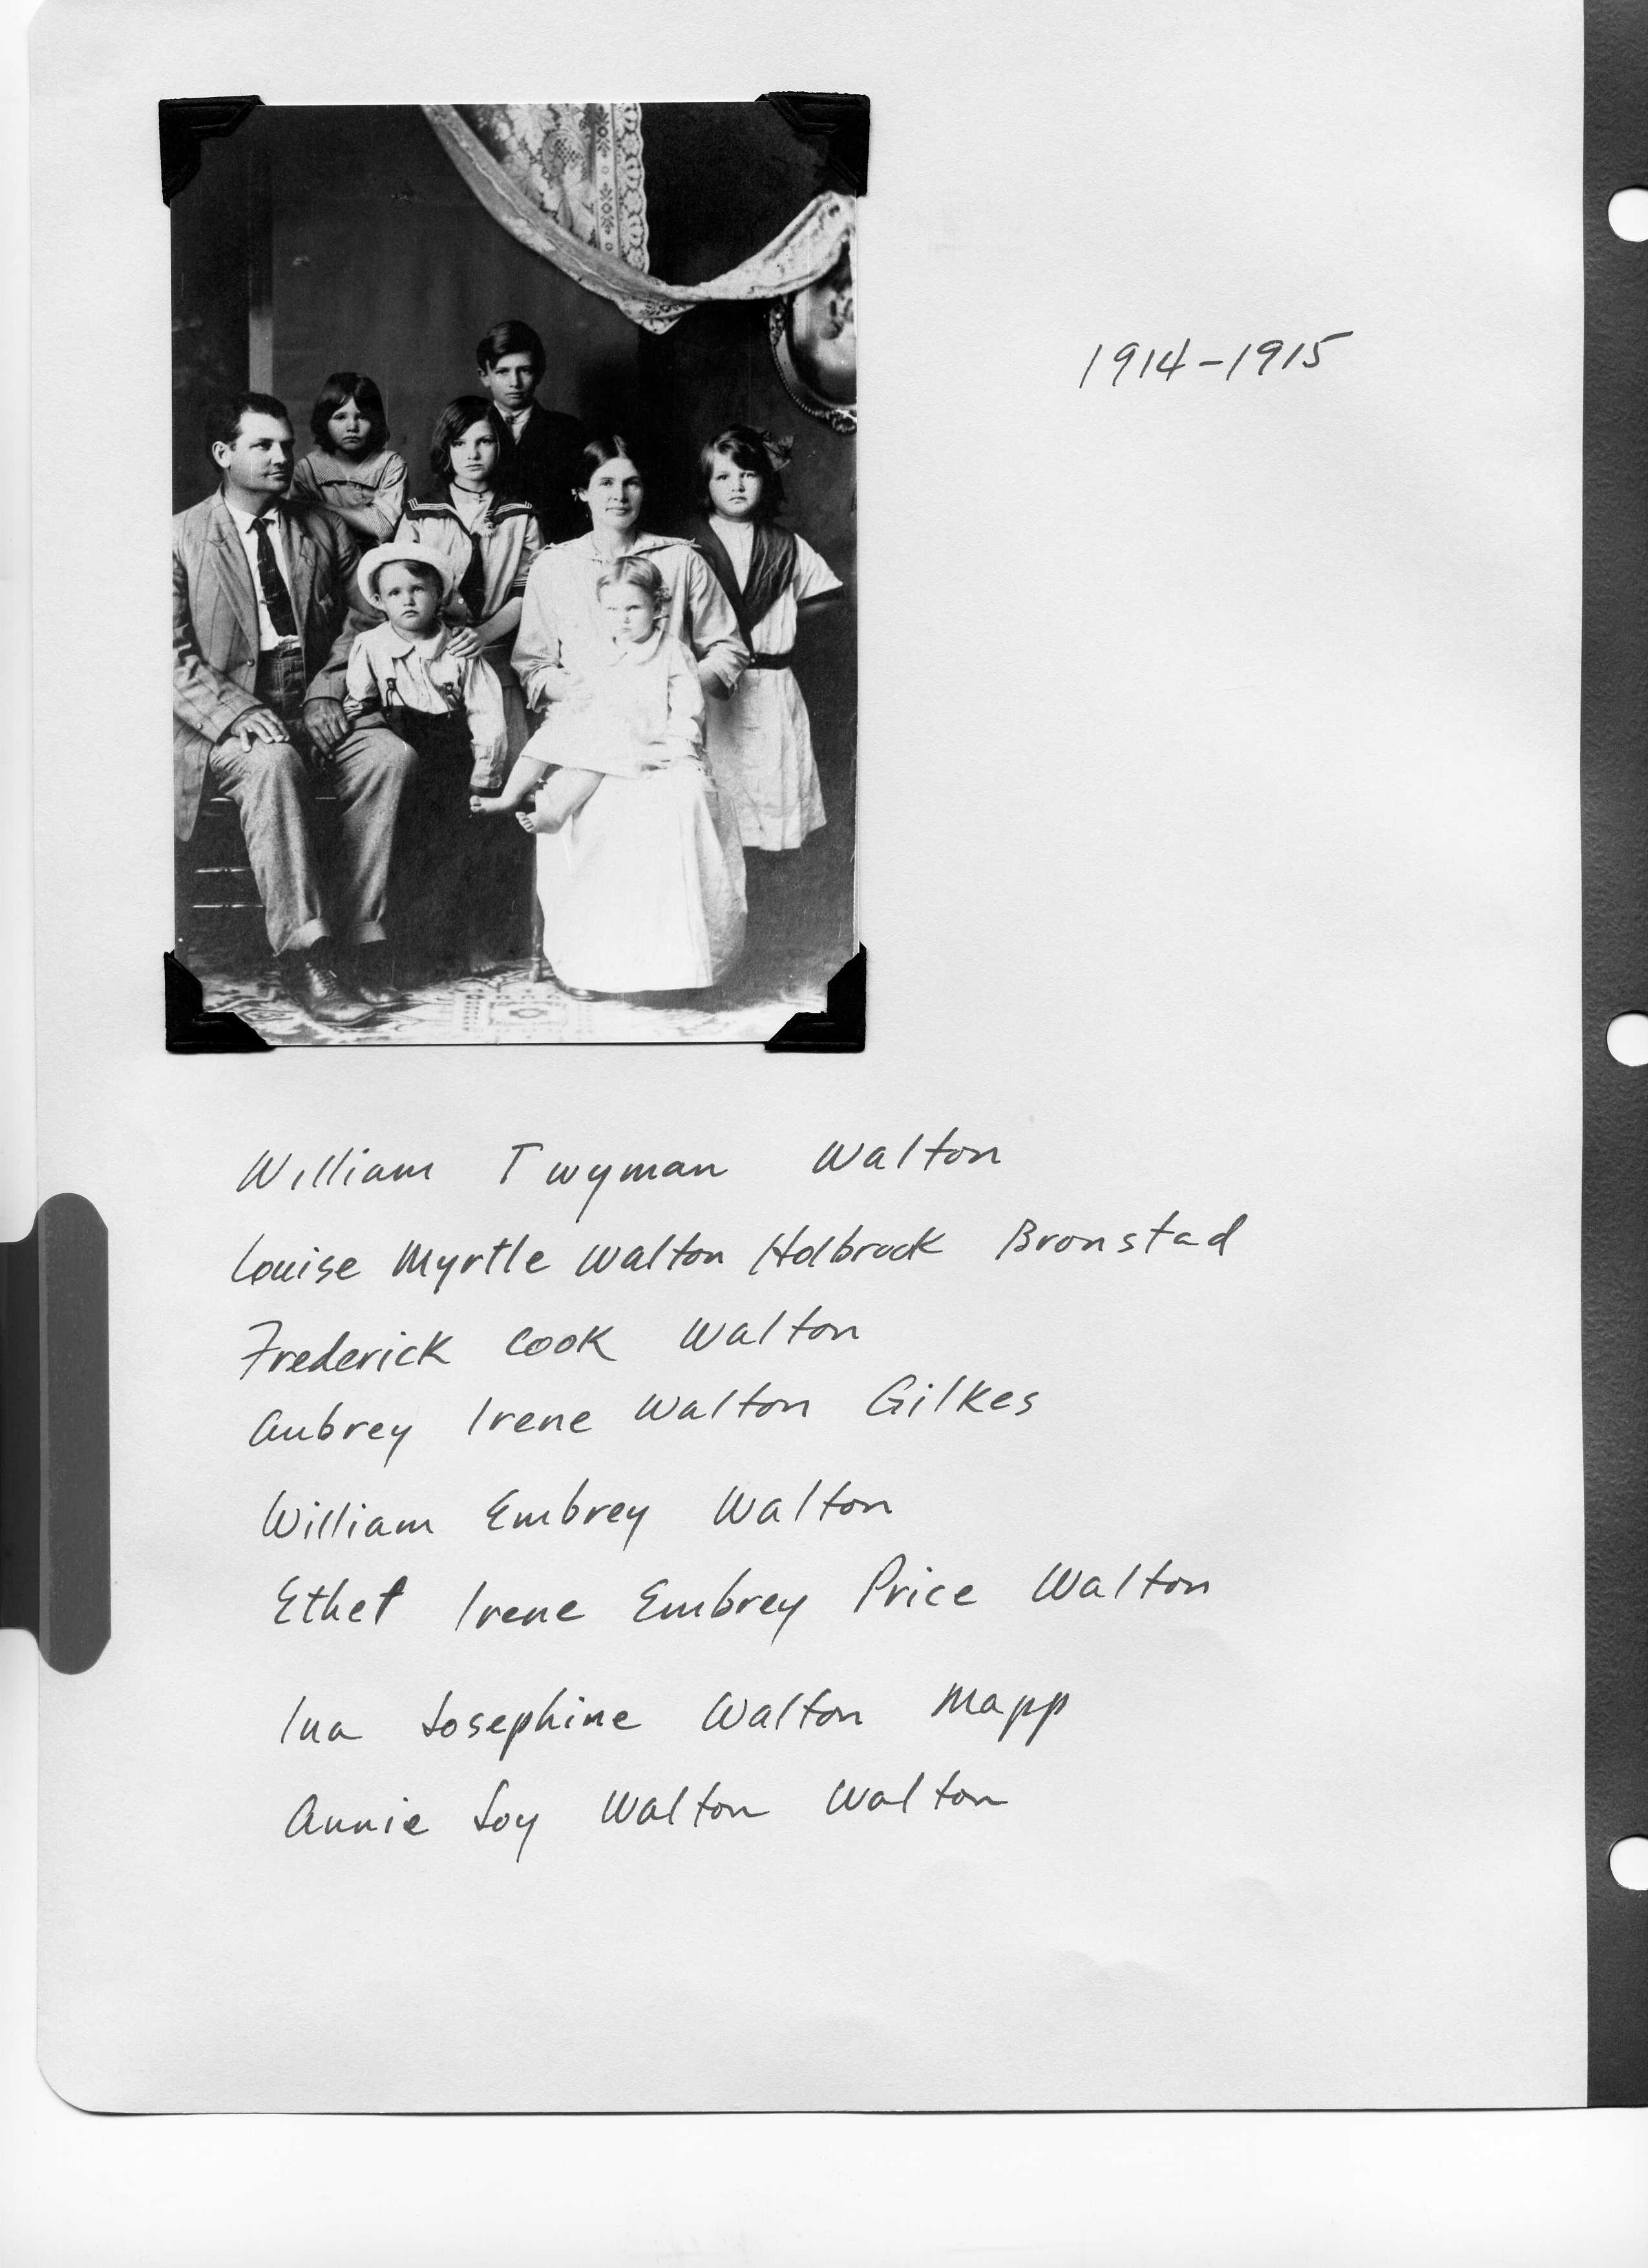 1914-1915
William Twyman Walton
Louise Myrtle Walton Holbrook Bronstad
Frederick Cook Walton
Aubrey Irene Walton Gilkes
William Embrey Walton
Ethel Irene Embrey Price Walton
Ina Josephine Walton Mapp
Annie Joy Walton Walton